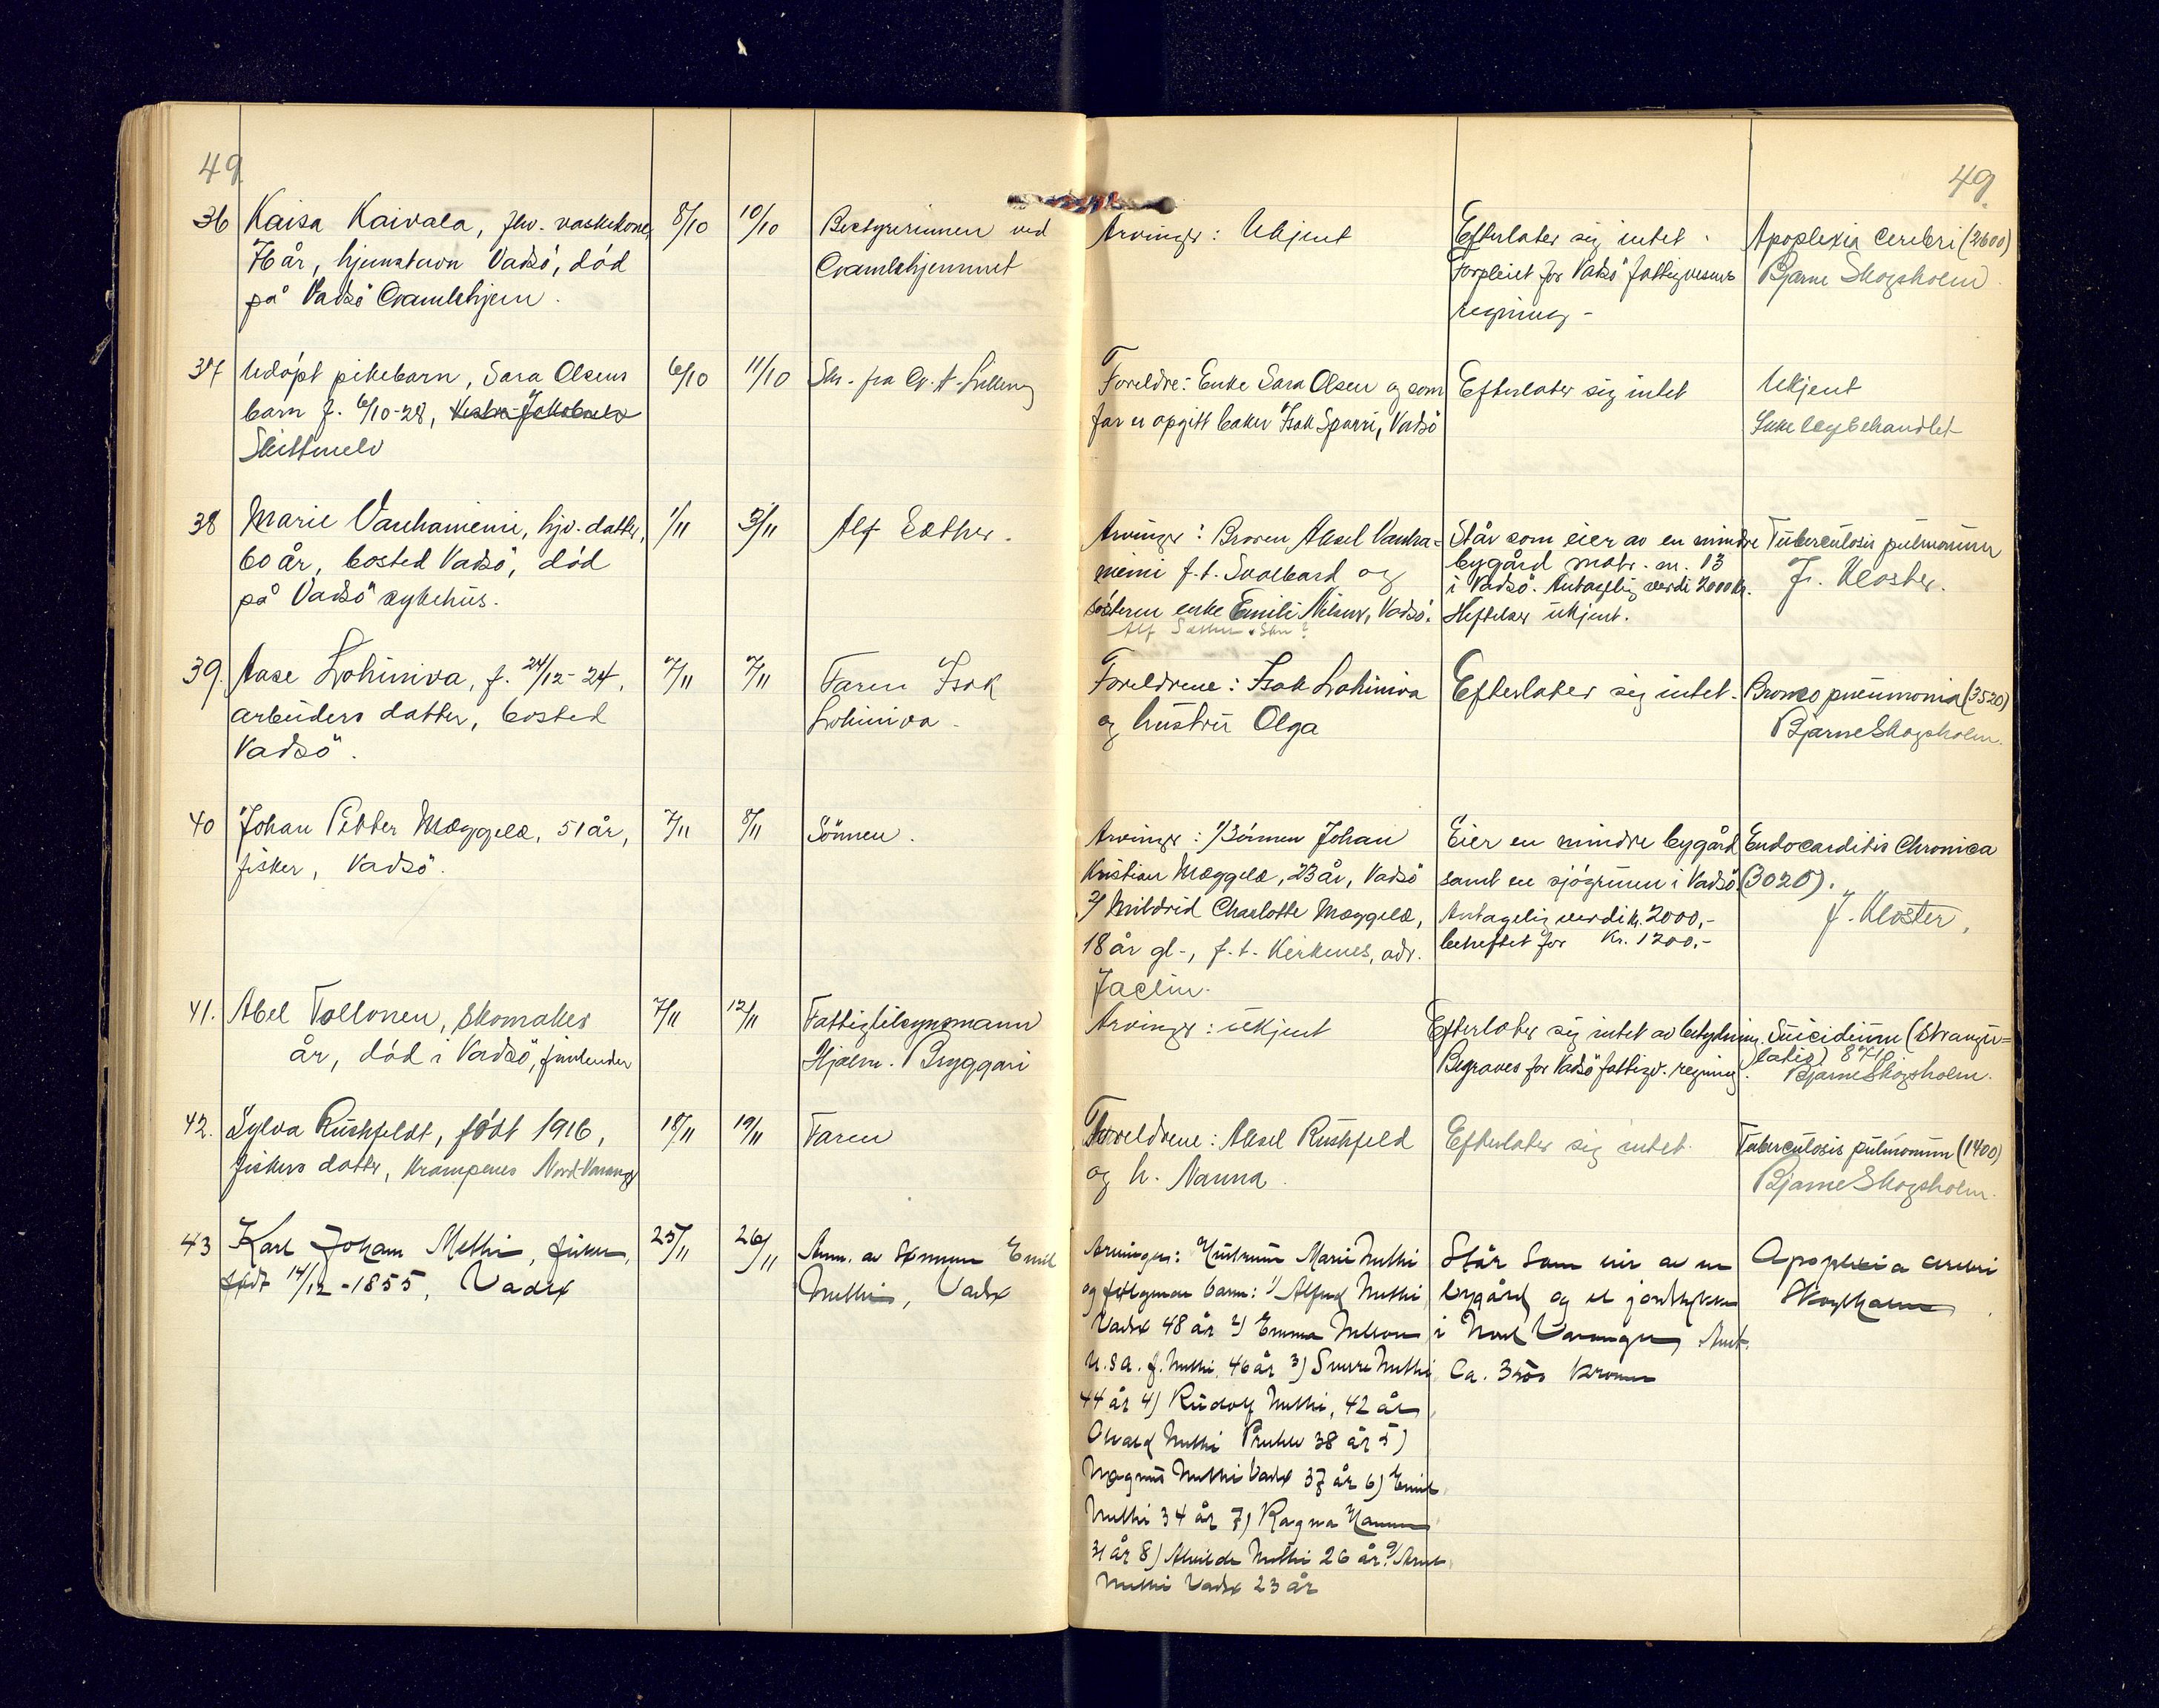 49
49.
36 Kaisa Kaivala, fhv. vaskekone, 8/10 10/10 Bestyrerinnen ved
76 år, hjemstavn Vadsö, död Gamlehjemmet
på Vadsö Gamlehjem.
Arvinger: Ukjent
Efterlater sig intet.
Forpleiet for Vadsö fattigvesens
regning -
Apoplexia cerebri (2600)
Bjarne Skogsholm
37 Udöpt pikebarn, Sara Olsens 6/10 11/10 Skr. fra
barn f. 6/10-28, Vestre Jakobselv
Skittenelv
Foreldre: Enke Sara Olsen og som
far er opgitt baker Isak Sparri, Vadsö
Efterlater sig intet
Ukjent
Ikke legebehandlet
38 Marie Vanhaniemi, hjv. datter, 1/11 3/11 Alf Sæther.
60 år, bosted Vadsö, död
på Vadsö sykehus.
Arvinger: Broren Aksel Vanha-
niemi f.t. Svalbard og
søsteren enke Emilie Nilsen, Vadsö.
Alf Sæther
Står som eier av en mindre
bygård matr. nr. 13
i Vadsö. Antagelig verdi 2000 kr.
Heftelser ukjent.
Tuberculosis pulmonum
J. Kloster.
39. Aase Lohiniva, f. 24/12-24, 7/11 7/11 Faren Isak
arbeiders datter, bosted Lohiniva.
Vadsö.
Foreldrene: Isak Lohiniva
og hustru Olga
Efterlater sig intet.
Bronco pneumonia (3520)
Bjarne Skogsholm.
40 Johan Petter Mæggelæ, 51 år, 7/11 8/11 Sönnen.
fisker, Vadsö.
Arvinger: 1/ Sönnen Johan
Kristian Mæggelæ, 23 år, Vadsö
2/ Mildrid Charlotte Mæggelæ,
18 år gl., f.t. Kirkenes, adr.
Eier en mindre bygård
samt en sjögrunn i Vadsö.
Antagelig verdi kr. 2000,-
beheftet for kr. 1200,-
Endocarditis Chronica
(3020).
J. Kloster.
41. Abel Tollonen, skomaker 7/11 12/11 Fattigtilsynsmann
år, död i Vadsö, finlender Hjalm. Bryggari
Arvinger: ukjent
Efterlater sig intet av betydning.
Begraves for Vadsö fattigv. regning.
Suicidium (strangu-
latio)
Bjarne Skogsholm.
42. Sylva Rushfeldt, født 1916, 18/11 19/11 Faren
fiskers datter, Krampenes Nord-Varanger
Foreldrene: Aksel Rushfeld
og h. Nanna
Efterlater sig intet.
Tuberculosis pulmonum (1400)
Bjarne Skogsholm.
43 Karl Johan Methi, fisker, 25/11 26/11 Anm. av sønnen Emil
født 14/12-1855, Vadsø Methi, Vadsø
Arvinger: Hustruen Marie Methi
og følgende barn: 1) Alfred Methi
Vadsø 48 år 2) Emma Nelson
U.S.A. f. Methi 46 år 3) Methi
44 år 4) Rudolf Methi, 42 år
Osvald Methi 38 år 5)
Magnus Methi Vadsø 37 år 6) Emil
Methi 34 år 7) Ragna
31 år 8) Alvilde Methi 26 år 9)
Methi Vadsø 23 år
Står som eier av en
bygård og et jordstykke
i Nord Varanger Ant.
Ca. kroner
Apoplexia cerebri
Skogsholm